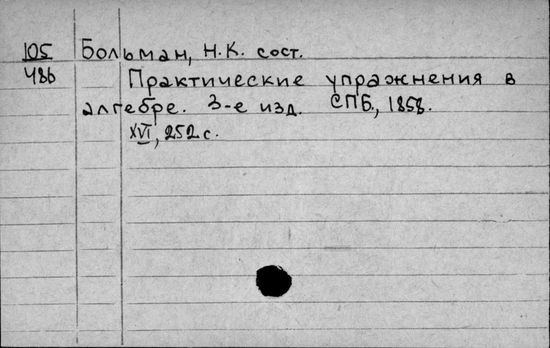 105 Больман, Н.К. сост.
486 Практические упражнения в
алгебре. 3-е изд. СПБ., 1858.
XVI, 252 с.